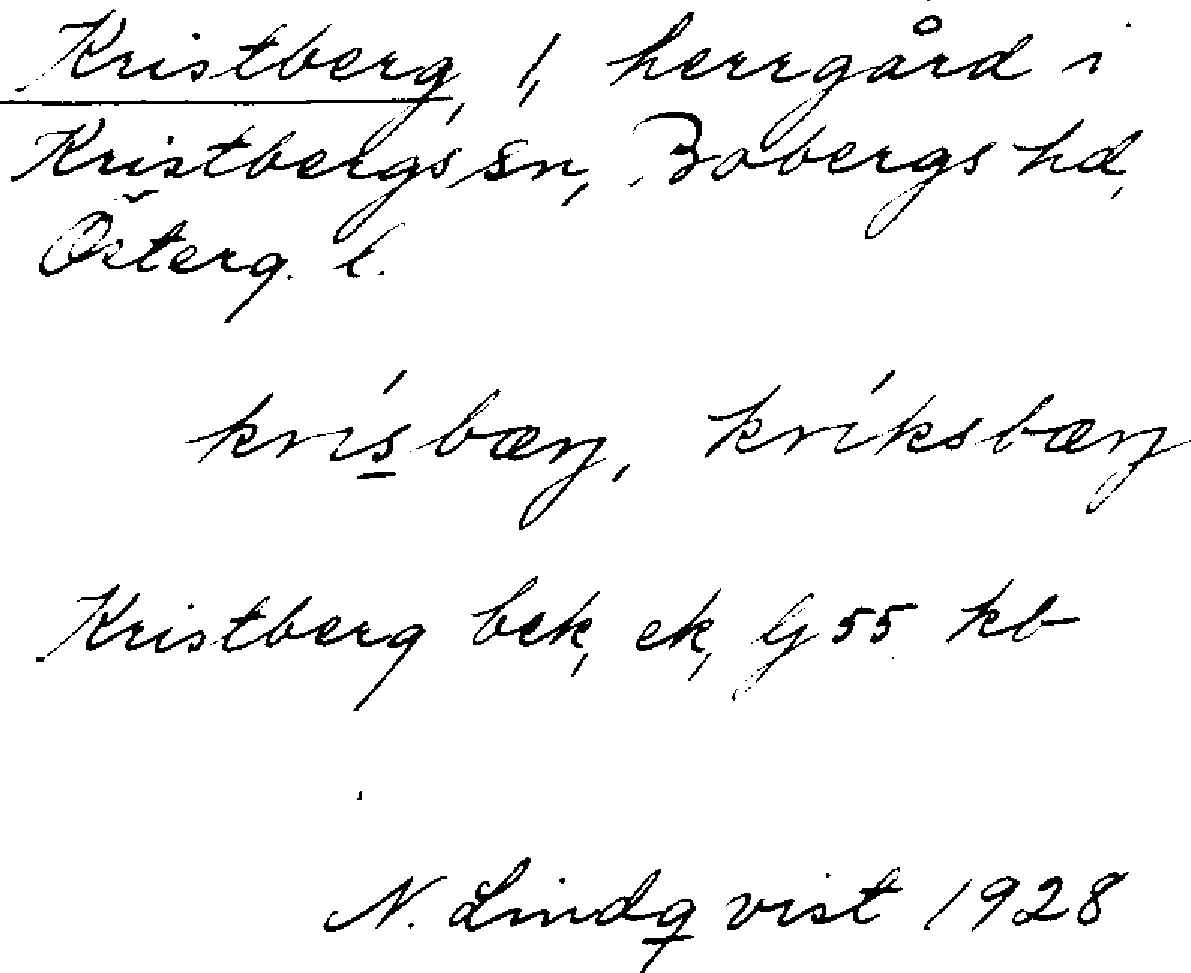 Kristberg, 1, herrgård i
Kristbergs sn, Bobergs hd,
Österg. l.
krísbærj, kríksbærj
Kristberg bek, ek, Gj 55 kb
N. Lindqvist 1928